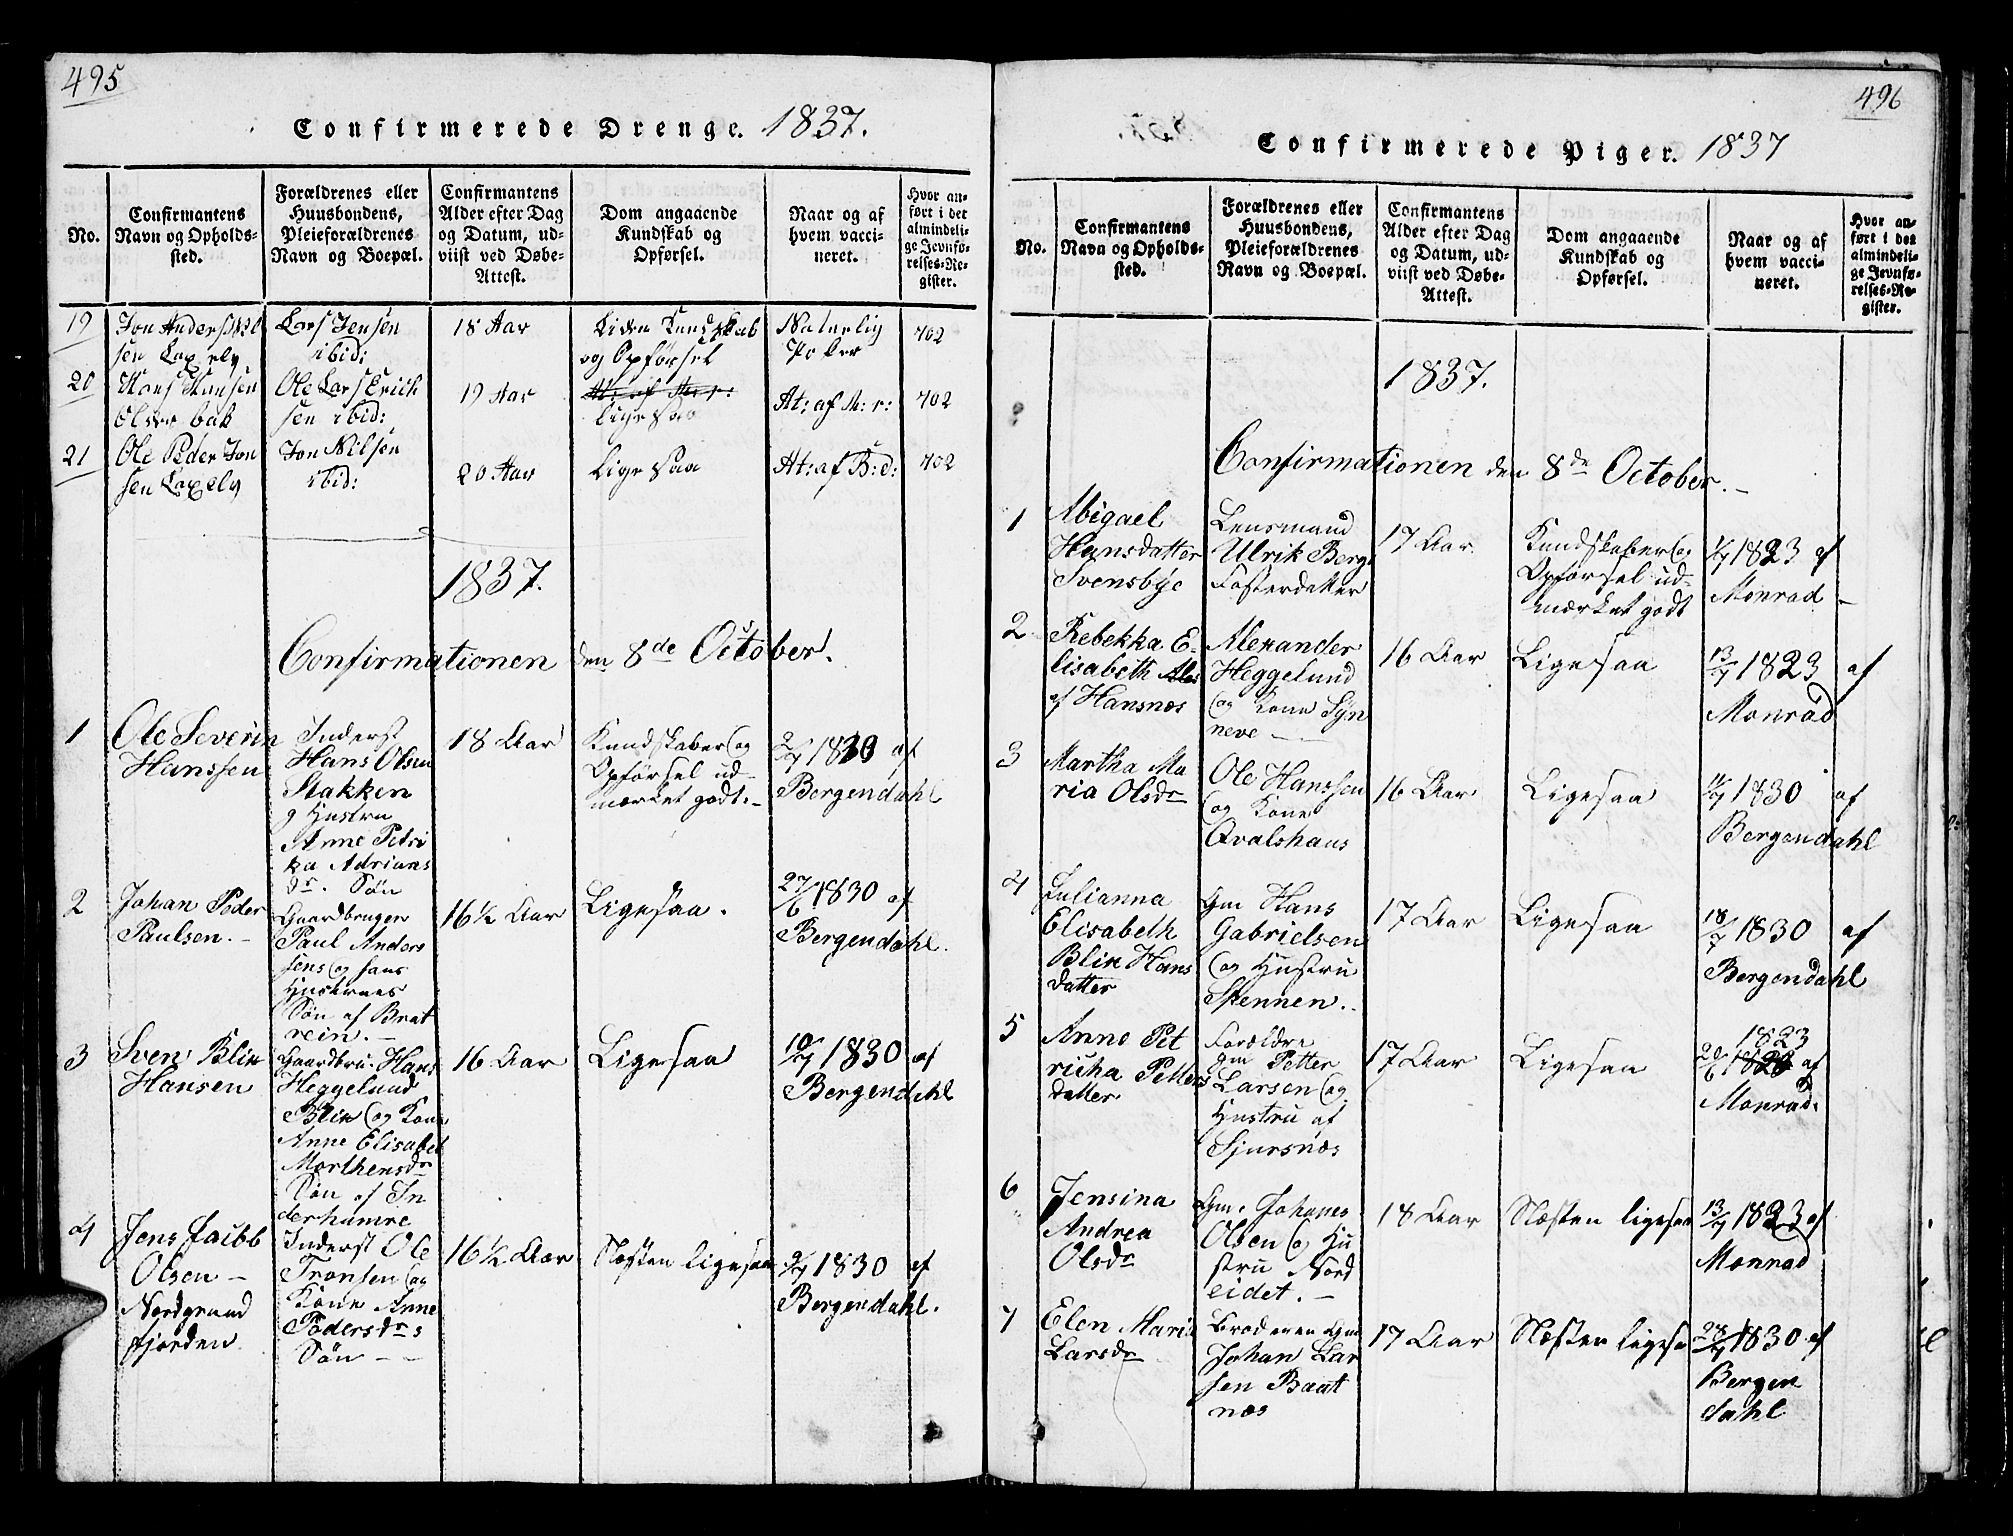 495
Confirmerede Drenge. 1837.
No.
Confirmantens
Navn og Opholds-
sted.
Forældrenes eller
Huusbondens,
Pleieforældrenes
Navn og Boepæl.
Confirmantens
Alder efter Dag
og Datum, ud-
viist ved Døbe-
Attest.
Dom angaaende
Kundskab og
Opførsel.
Naar og af
hvem vacci-
neret.
Hvor an-
ført i det
almindeli-
ge Jevnfø-
relses-Re-
gister.
19
Jon Anders
sen Laxelv
Lars Jensen
ibid:
18 Aar
Liden Kundskab
og Opførsel
Naturlig
Poker
702
20
Hans Hansen
Olderbak
Ole Lars Erich
sen ibid:
19 Aar
Ligesaa
At: af M: r:
702
21
Ole Peder Jon
sen Laxelv
Jon Nilsen
ibid:
20 Aar
Lige saa
At: af B: d:
702
1837.
Confirmationen den 8de October.
1
Ole Severin
Hanssen
Inderst
Hans Olsen
Stakken
og Hustru
Anne Petri
ka Adrians
dr. Søn
18 Aar
Kundskaber og
Opførsel ud-
mærket godt.-
2/7 1830 af
Bergendahl
2
Johan Peder
Paulsen.-
Gaardbruger
Paul Anders
sens og hans
Hustrues
Søn af Brat
rein.-
16½ Aar
Ligesaa.
27/6 1830 af
Bergendahl.
3
Sven Blix
Hansen
Gaardbru. Hans
Heggelund
Blix og Kone
Anne Elisabet
Morthensdr
Søn af In
derhamre
16 Aar
Ligesaa
10/7 1830 af
Bergendahl
4
Jens Jacibb
Olsen -
Nordgrund
fjorden.
Inderst Ole
Tronsen og
Kone Anne
Pedersdrs
Søn - -
16½ Aar
Næsten ligesaa
2/7 1830 af
Bergendahl.
496
Confirmerede Piger. 1837
No.
Confirmantens
Navn og Opholds-
sted.
Forældrenes eller
Huusbondens,
Pleieforældrenes
Navn og Boepæl.
Confirmantens
Alder efter Dag
og Datum, ud-
viist ved Døbe-
Attest.
Dom angaaende
Kundskab og
Opførsel.
Naar og af
hvem vacci-
neret.
Hvor an-
ført i det
almindeli-
ge Jevnfø-
relses-Re-
gister.
1837.
Confirmationen den 8de October.-
1
Abigael
Hansdatter
Svensbye
Lensmand
Ulrik Bergs
Fosterdatter
17 Aar.
Kundskaber og
Opførsel ud-
mærket godt
1/7 1823 af
Monrad -
2
Rebekka E-
lisabeth Alex
af Hansnæs
Alexander
Heggelund
og Kone Syn
neve -
16 Aar
Ligesaa
13/7 1823 af
Monrad
3
Martha Ma
ria Olsdr
Ole Hanssen
og Kone
Qvalshaus
16 Aar
Ligesaa
11/7 1830 af
Bergendahl
4
Julianna
Elisabeth
Blix Hans
datter
Gm Hans
Gabrielsen
og Hustru
Stennen.
17 Aar
Ligesaa
18/7 1830 af
Bergendahl
5
Anne Pet
richa Petters
datter
Forældre
gm Petter
Larsen og
Hustru af
Sjursnæs
17 Aar
Ligesaa
1823
20/6 af
Monrad.
6
Jensina
Andrea
Olsdr
Gm. Johanes
Olsen og Hu
stru Nord
eidet.-
18 Aar
Næsten ligesaa
13/7 1823 af
Monrad
7
Elen Maria
Larsdr
Broderen Gm
Johan Lar
sen Baat
næs
17 Aar
Næsten ligesa
28/7 1830 af
Bergen
dahl